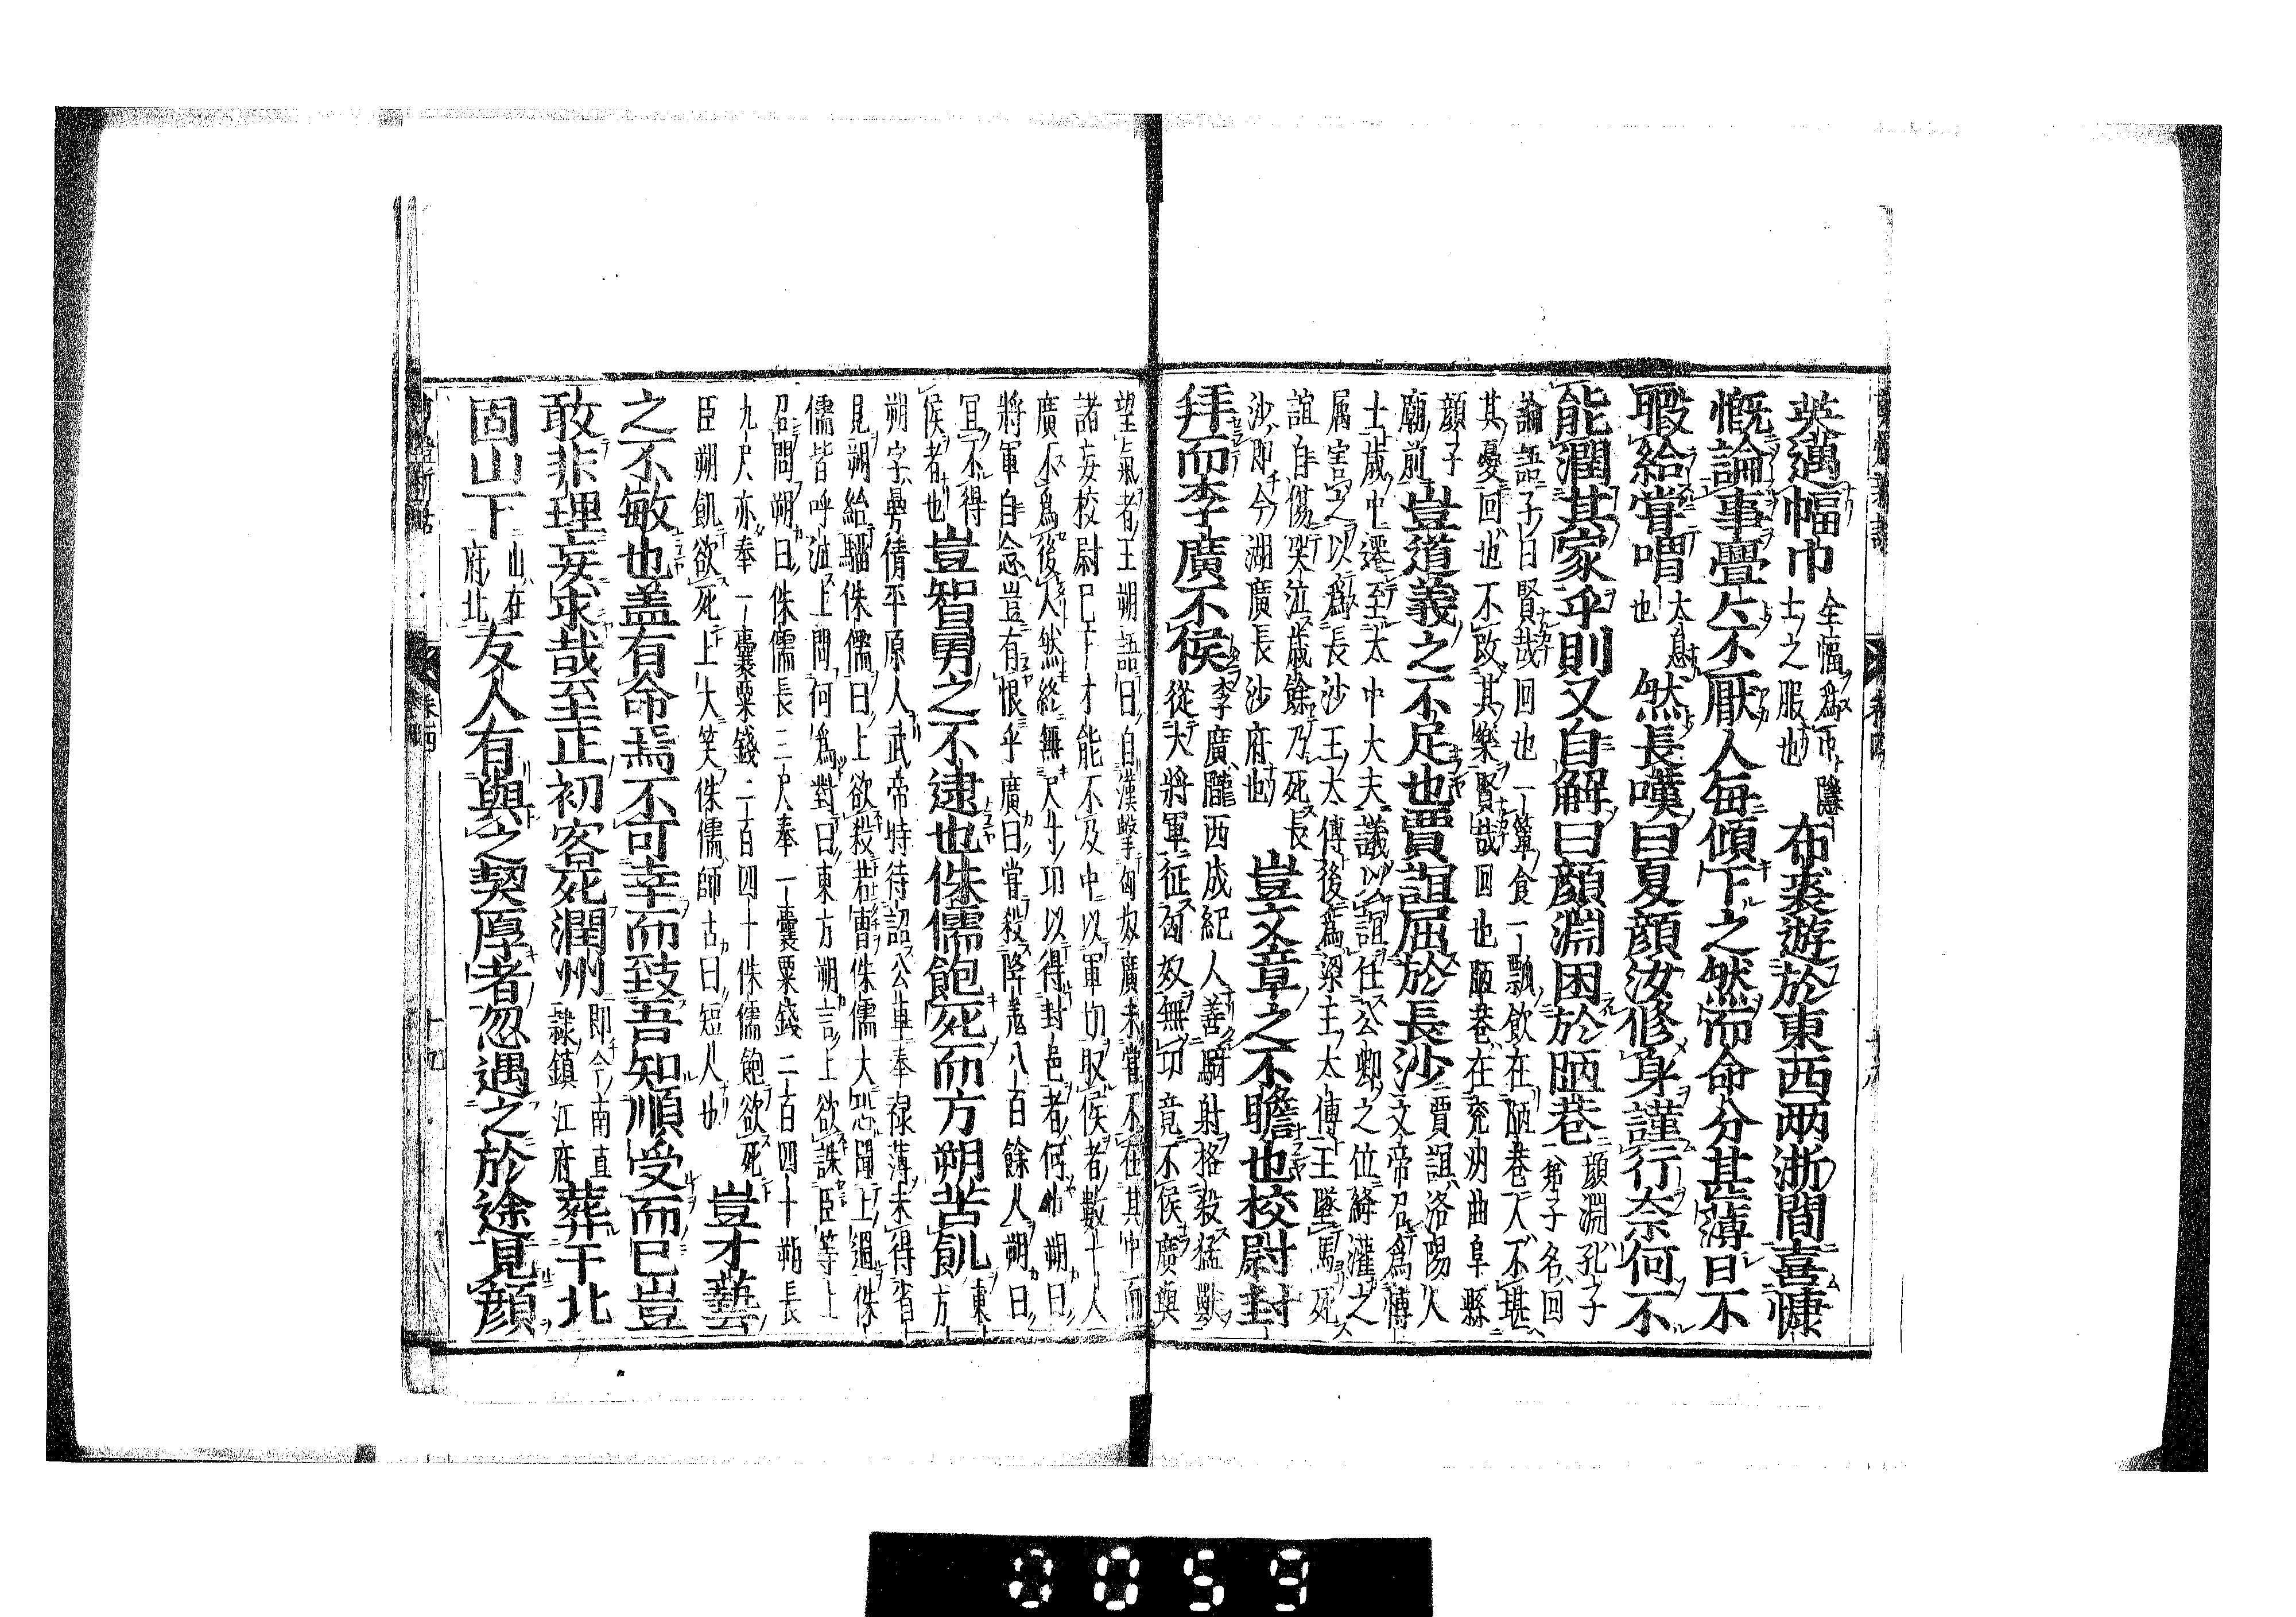 英邁幅巾全幅爲巾隱士之服也布裘遊於東西兩浙間喜慷
慨論事亹亹不厭人每傾下之然而命分甚薄日不
暇給嘗喟太息也然長嘆曰夏顏汝修身謹行奈何不
能潤其家乎則又自解曰顏淵困於陋巷顏淵孔子弟子名回
論語子曰賢哉回也一簞食一瓢飲在陋巷人不堪
其憂回也不改其樂賢哉回也陋巷在兗州曲阜縣
顏子廟前豈道義之不足也賈誼屈於長沙賈誼洛陽人文帝召爲博
士歲中遷至太中大夫議以誼任公卿之位絳灌之
属害之以爲長沙王太傅後爲梁王太傅王墜馬死
誼自傷哭泣歲餘乃死長
沙即今湖廣長沙府也豈文章之不贍也校尉封
拜而李廣不侯李廣隴西成紀人善騎射格殺猛獸
從大將軍征匈奴無功竟不侯廣與
望氣者王朔語曰自漢擊匈奴廣未嘗不在其中而
諸妄校尉已下才能不及中以軍功取侯者數十人
廣不爲後人然終無尺寸功以得封邑者何也朔曰
將軍自念豈有恨乎廣曰嘗殺降羌八百餘人朔曰
宜不得侯者也豈智勇之不逮也侏儒飽死而方朔苦飢東方
朔字曼倩平原人武帝特待詔公車奉祿薄未得省
見朔給騶侏儒曰上欲殺若曹侏儒大恐聞上過侏
儒皆呼泣上問何爲對曰東方朔言上欲誅臣等上
召問朔曰侏儒長三尺奉一囊粟錢二百四十朔長
九尺亦奉一囊粟錢二百四十侏儒飽欲死
臣朔飢欲死上大笑侏儒師古曰短人也豈才藝
之不敏也盖有命焉不可幸而致吾知順受而已豈
敢非理妄求哉至正初客死潤州即今南直隷鎮江府葬于北
固山下山在府北友人有與之契厚者忽遇之於途見顏
卷四
十九
0059